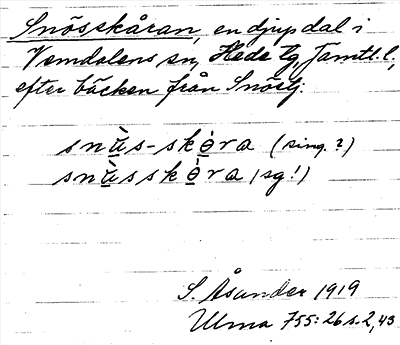 Snösskåran, en djup dal i
Vemdalens sn, Hede tg, Jämtl. l.,
efter bäcken från Snöstj.
snùs-skɵ̀ra (sing.?)
snùsskɵ̀ra (sg!)
S. Åsander 1919
Ulma 755:26 s. 2, 43